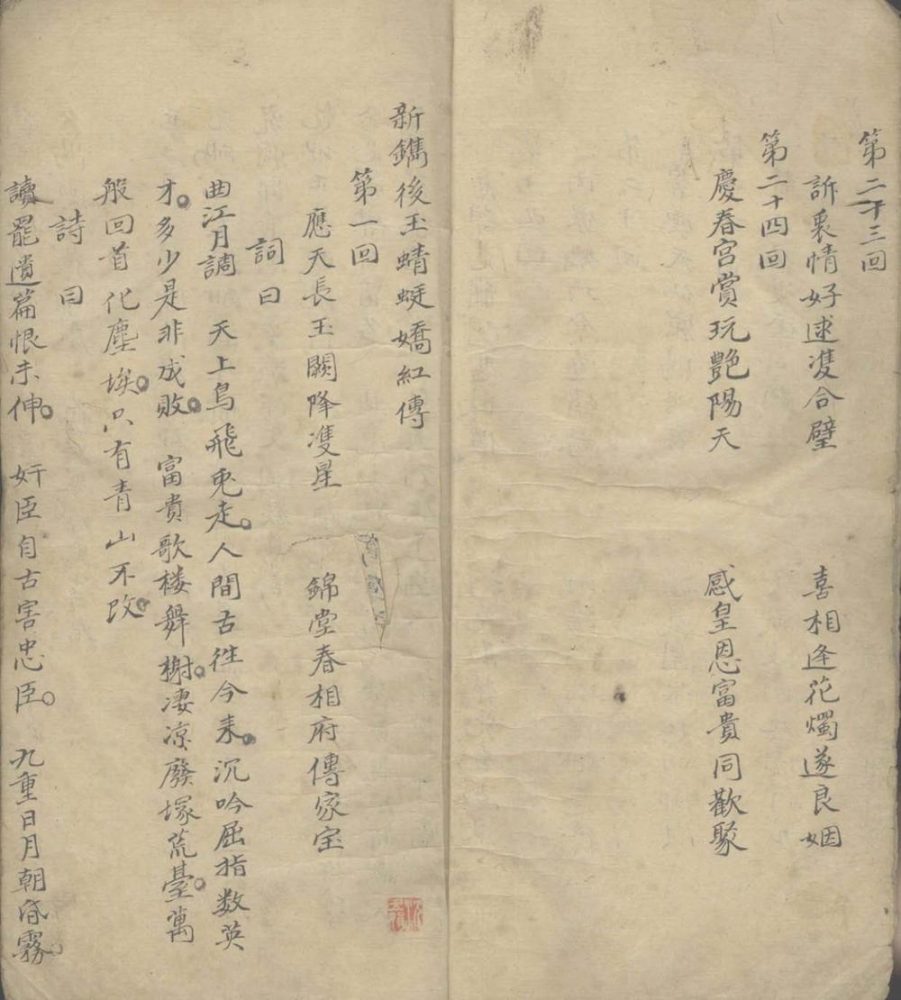 第二十三回
訴衷情好逑雙合璧　喜相逢花燭遂良姻
第二十四回
慶春宮賞玩艷陽天　感皇恩富貴同歡聚
新鐫後玉蜻蜓嬌紅傳
第一回
應天長玉闕降雙星　錦堂春相府傳家宝
詞曰
曲江月調　天上烏飛兎走。人間古徃今来。沉吟屈指数英
才。多少是非成敗。富貴歌楼舞榭。凄凉廢塚荒臺。萬
般回首化塵埃。只有青山不改。
詩曰
讀罷遺篇恨未伸。奸臣自古害忠臣。九重日月朝昏霧。